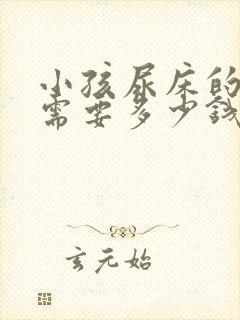 小孩尿床的
需要多少钱
玄元始